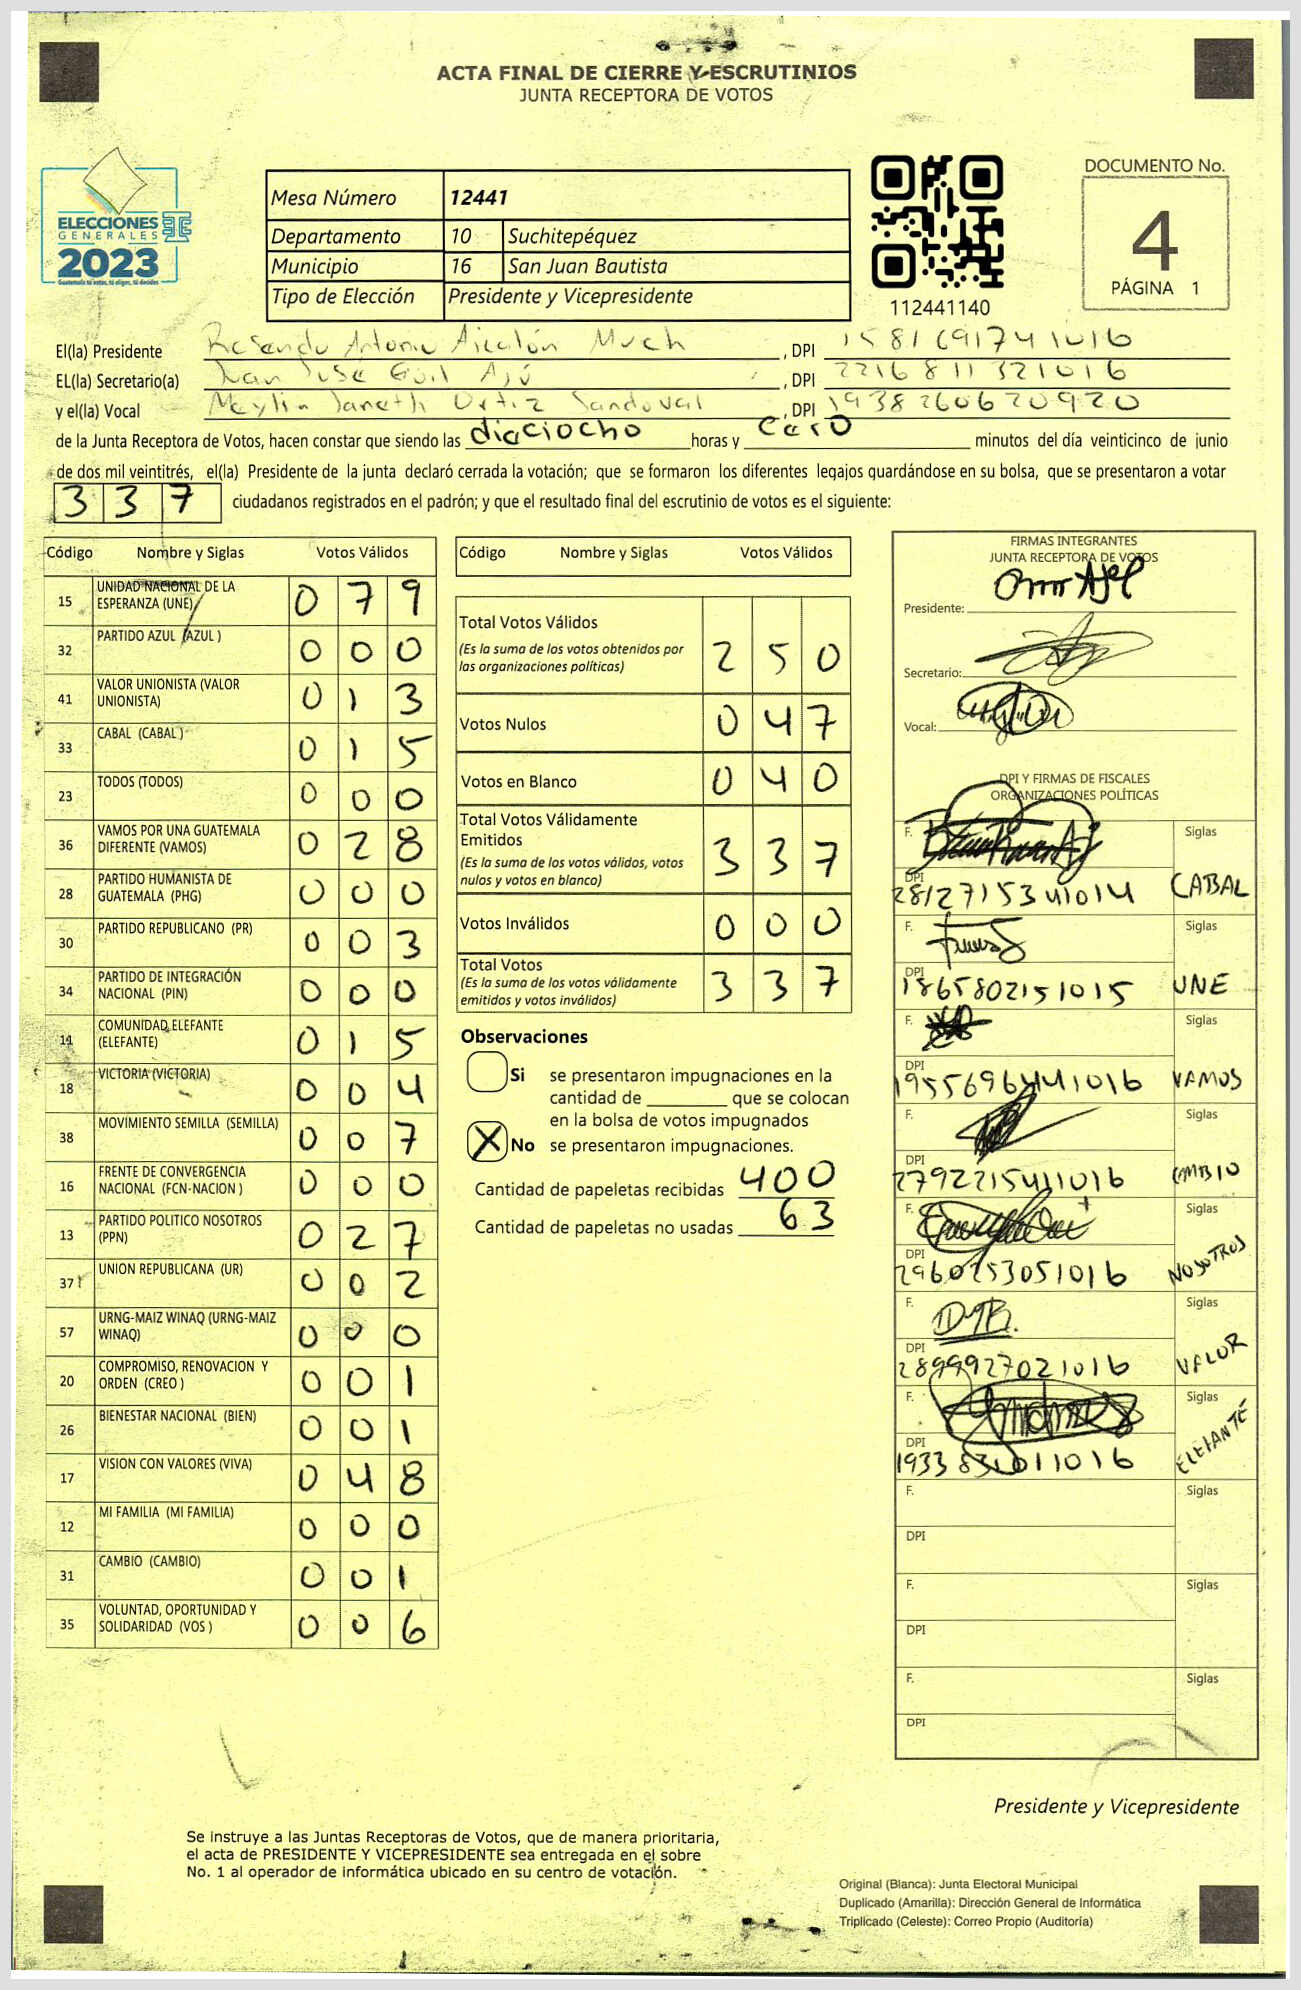 ACTA FINAL DE CIERRE Y ESCRUTINIOS
JUNTA RECEPTORA DE VOTOS
ELECCIONES
GENERALES
2023
Guatemala tú votas, tú eliges, tú decides
Mesa Número 12441
Departamento 10 Suchitepéquez
Municipio 16 San Juan Bautista
Tipo de Elección Presidente y Vicepresidente
112441140
DOCUMENTO No.
4
PÁGINA 1
El(la) Presidente Antonio Much, DPI 1581691741016
EL(la) Secretario(a) Juan José, DPI 2216811321016
y el(la) Vocal Meylin Janeth Ortiz Sandoval, DPI 1938260620920
de la Junta Receptora de Votos, hacen constar que siendo las diaciocho horas y cero minutos del día veinticinco de junio
de dos mil veintitrés, el(la) Presidente de la junta declaró cerrada la votación; que se formaron los diferentes legajos guardándose en su bolsa, que se presentaron a votar
337 ciudadanos registrados en el padrón; y que el resultado final del escrutinio de votos es el siguiente:
Código Nombre y Siglas Votos Válidos
15 UNIDAD NACIONAL DE LA ESPERANZA (UNE) 079
32 PARTIDO AZUL (AZUL ) 000
41 VALOR UNIONISTA (VALOR UNIONISTA) 013
33 CABAL (CABAL ) 015
23 TODOS (TODOS) 000
36 VAMOS POR UNA GUATEMALA DIFERENTE (VAMOS) 028
28 PARTIDO HUMANISTA DE GUATEMALA (PHG) 000
30 PARTIDO REPUBLICANO (PR) 003
34 PARTIDO DE INTEGRACIÓN NACIONAL (PIN) 000
14 COMUNIDAD ELEFANTE (ELEFANTE) 015
18 VICTORIA (VICTORIA) 004
38 MOVIMIENTO SEMILLA (SEMILLA) 007
16 FRENTE DE CONVERGENCIA NACIONAL (FCN-NACION ) 000
13 PARTIDO POLITICO NOSOTROS (PPN) 027
37 UNION REPUBLICANA (UR) 002
57 URNG-MAIZ WINAQ (URNG-MAIZ WINAQ) 000
20 COMPROMISO, RENOVACION Y ORDEN (CREO ) 001
26 BIENESTAR NACIONAL (BIEN) 001
17 VISION CON VALORES (VIVA) 048
12 MI FAMILIA (MI FAMILIA) 000
31 CAMBIO (CAMBIO) 001
35 VOLUNTAD, OPORTUNIDAD Y SOLIDARIDAD (VOS ) 006
Código Nombre y Siglas Votos Válidos
Total Votos Válidos 250
(Es la suma de los votos obtenidos por
las organizaciones políticas)
Votos Nulos 047
Votos en Blanco 040
Total Votos Válidamente
Emitidos 337
(Es la suma de los votos válidos, votos
nulos y votos en blanco)
Votos Inválidos 000
Total Votos 337
(Es la suma de los votos válidamente
emitidos y votos inválidos)
Observaciones
Si se presentaron impugnaciones en la
cantidad de ________ que se colocan
en la bolsa de votos impugnados
X No se presentaron impugnaciones.
Cantidad de papeletas recibidas 400
Cantidad de papeletas no usadas 63
FIRMAS INTEGRANTES
JUNTA RECEPTORA DE VOTOS
Presidente:
Secretario:
Vocal:
DPI Y FIRMAS DE FISCALES
ORGANIZACIONES POLÍTICAS
F. Siglas
DPI 2812715341014 CABAL
F. Siglas
DPI 1865802151015 UNE
F. Siglas
DPI 1955696441016 VAMOS
F. Siglas
DPI 2792215411016 CAMBIO
F. Siglas
DPI 2960253051016 NOSOTROS
F. Siglas
DPI 2899927021016 VALOR
F. Siglas
DPI 1933 1011016 ELEFANTE
F. Siglas
DPI
F. Siglas
DPI
F. Siglas
DPI
Presidente y Vicepresidente
Se instruye a las Juntas Receptoras de Votos, que de manera prioritaria,
el acta de PRESIDENTE Y VICEPRESIDENTE sea entregada en el sobre
No. 1 al operador de informática ubicado en su centro de votación.
Original (Blanca): Junta Electoral Municipal
Duplicado (Amarilla): Dirección General de Informática
Triplicado (Celeste): Correo Propio (Auditoría)